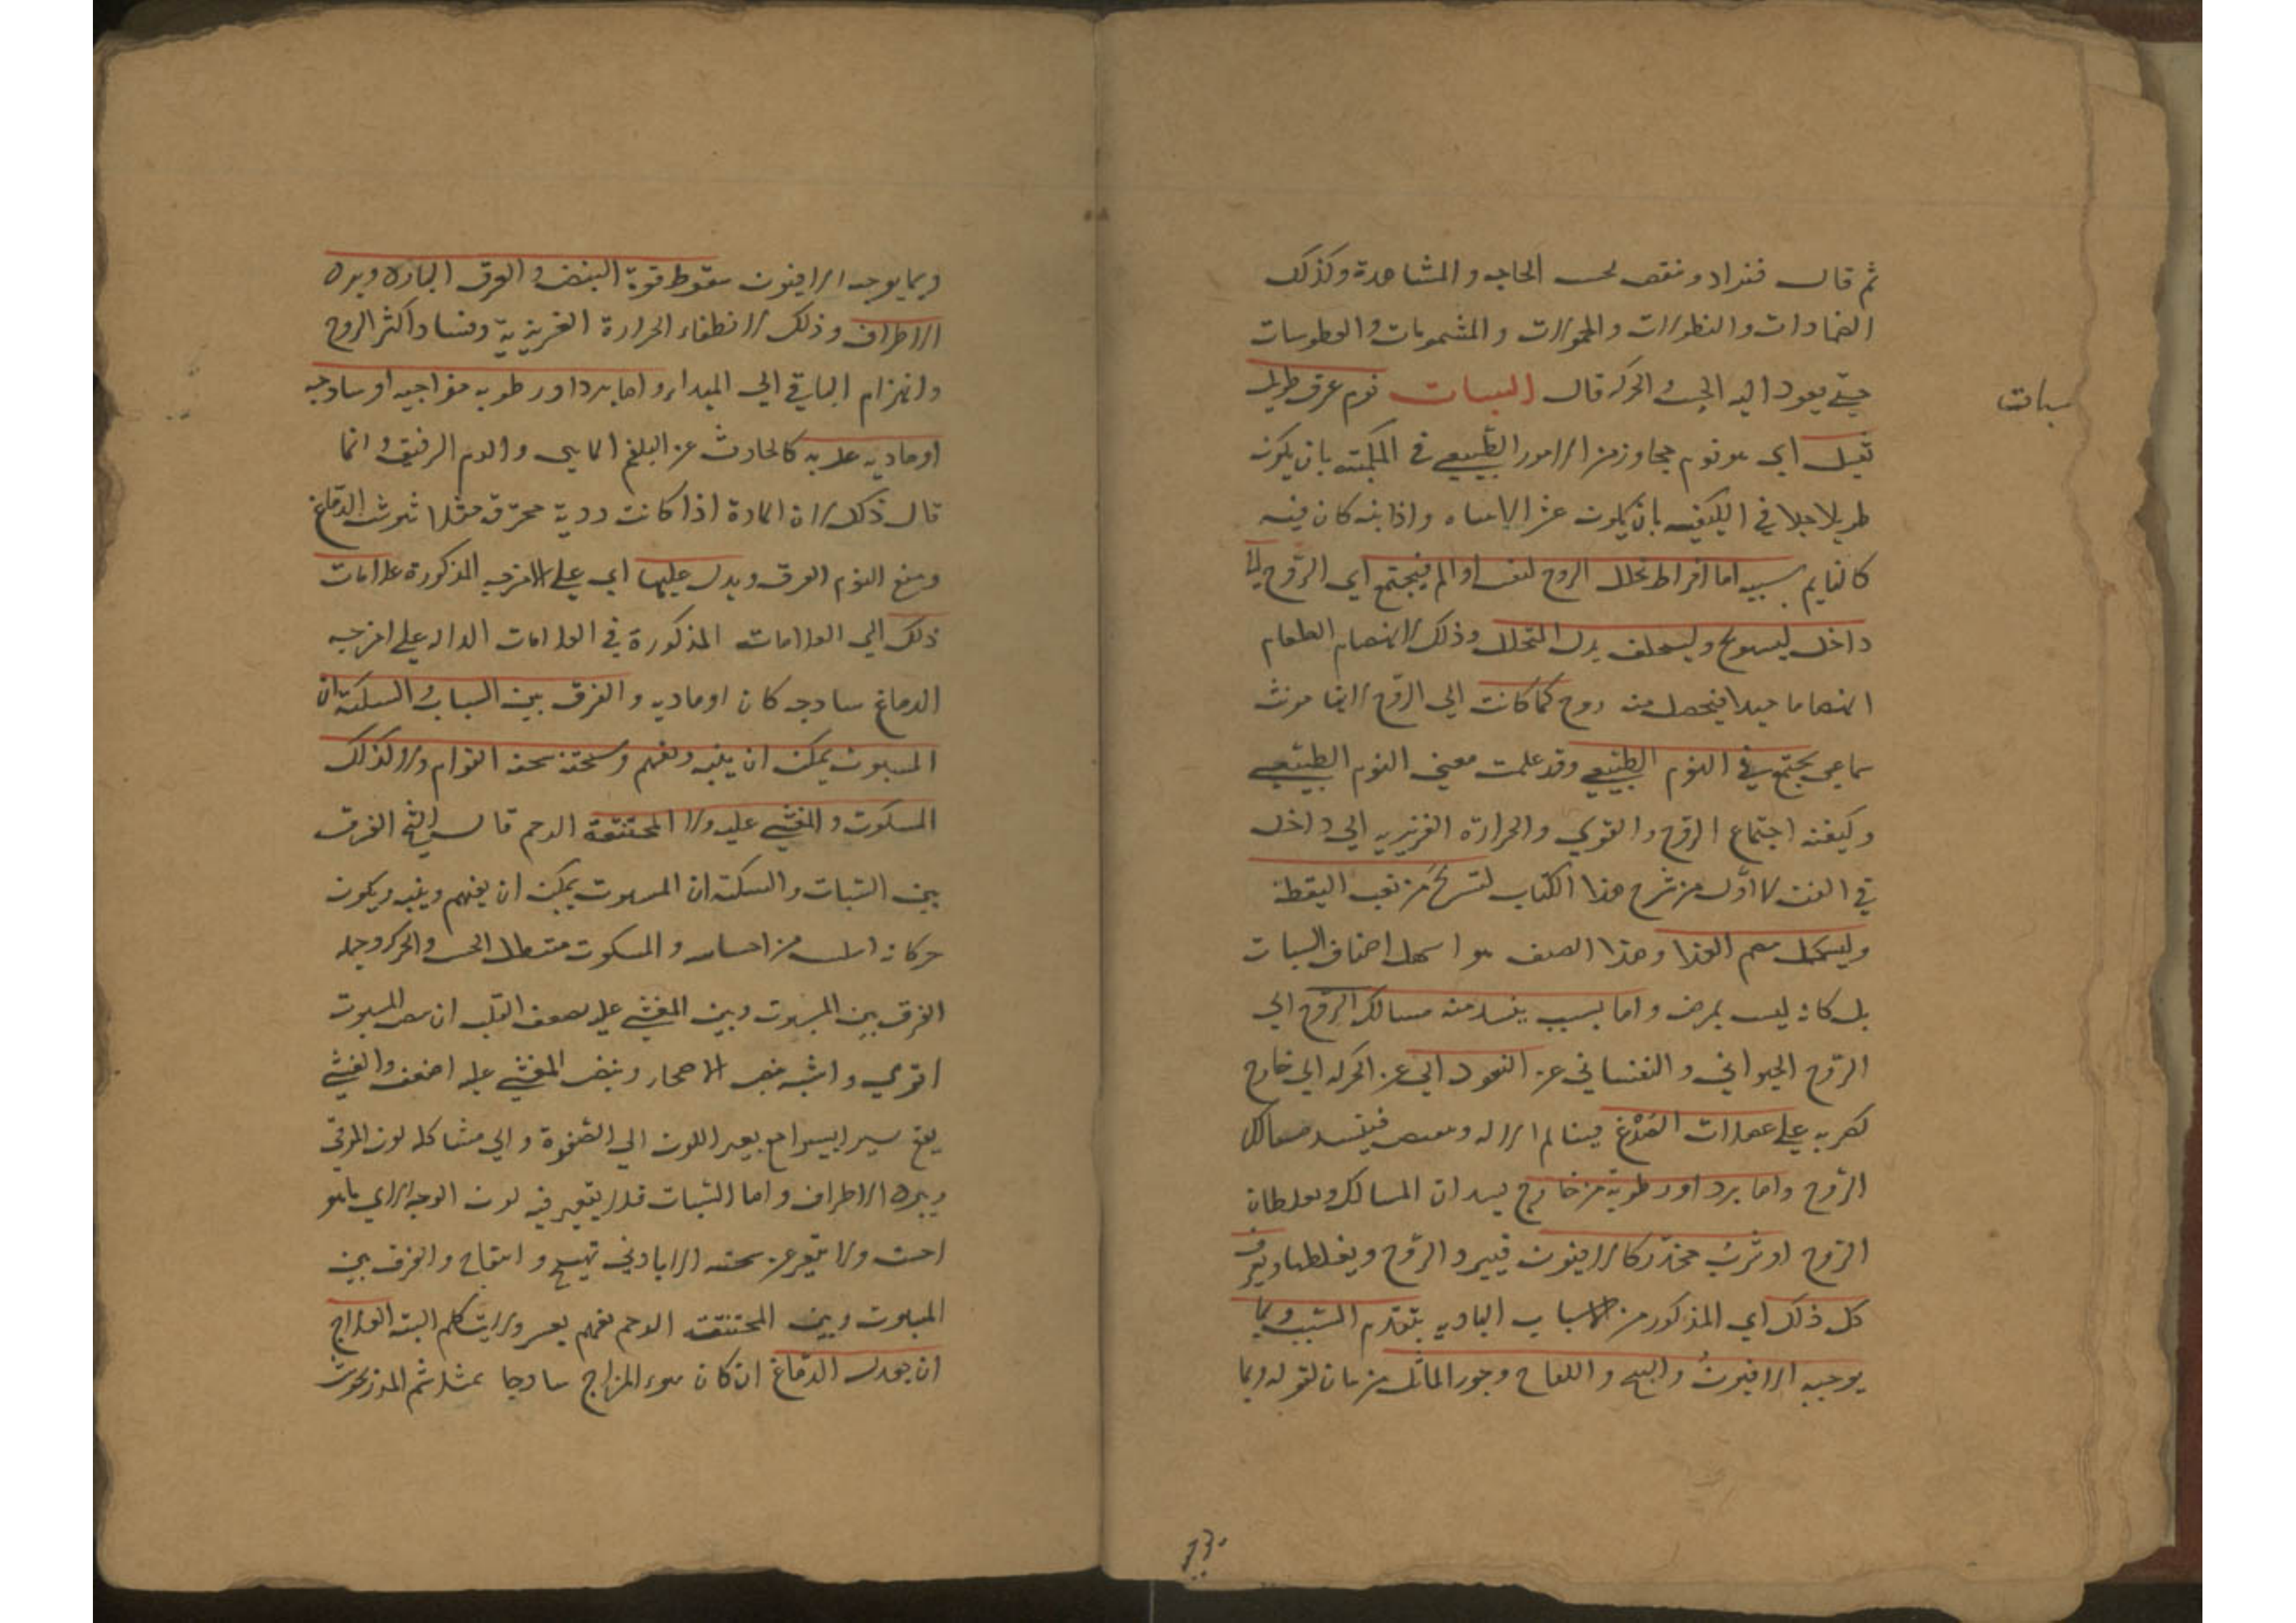 ثم قال فتزاد وتنقص بحسب الحاجة والمشاهدة وكذلك
الضمادات والنطولات والحمولات والمشمومات والعطوسات
حتى يعود اليه الحس والحركة قال السبات نوم غرق طويل
سبات
ثقيل اي هو نوم مجاوز من الامور الطبيعي في الكمية بان يكون
طويلا جدا في الكيفية بان يكون عسر الانتباه واذا نبه كان فيه
كالنايم سببه اما افراط تحلل الروح لتعب او الم فيجتمع اي الروح الى
داخل ليستريح وليستخلف بدل المتحلل وذلك لانهضام الطعام
انهضاما جيدا فيحصل منه روح كما كانت اي الروح لانها مونث
سماعي يجتمع في النوم الطبيعي وقد علمت معنى النوم الطبيعي
وكيفية اجتماع الروح والقوي والحرارة الغريزيه الي داخل
في الفن الاول من شرح هذا الكتاب لتستريح من تعب اليقظة
وليستكمل هضم الغذا وهذا الصنف هو اسهل اصناف السبات
بل كانه ليس بمرض واما بسبب ينسد منه مسالك الروح اي
الروح الحيواني والنفساني عن النفوذ اي عن الحركة الي خارج
كضربه علي عضلات الصدغ فيتالم الاله وينقبض فينسد مسالك
الروح واما برد او رطوبة من خارج يسدان المسالك ويغلظان
الروح او شرب مخدر كالافيون فيبرد الروح ويغلظها ويعرف
كل ذلك اي المذكور من الاسباب البادية بتقدم السبب وبما
يوجبه الافيون والبنج واللفاح وجوز الماثل من بيان لقوله وبما
وبما يوجبه الافيون سقوط قوة النبض والعرق البارد وبرد
الاطراف وذلك لانطفاء الحرارة الغريزية وفساد اكثر الروح
وانهزام الباقي الي المبداء واما برد او رطوبه مزاجيه او ساذجه
او ماديه غلبه كالحادث عن البلغم المايي والدم الرقيق وانما
قال ذلك لان المادة اذا كانت ردية محترقه مثلا شوشت الدماغ
ومنع النوم الغرق ويدل عليها اي علي الامزجه المذكورة علامات
ذلك اي العلامات المذكورة في العلامات الداله علي امزجه
الدماغ ساذجه كان او ماديه والفرق بين السبات والسكتة ان
المسبوت يمكن ان ينبه ويفهم وسحنته سحنة النوام ولا كذلك
المسكوت والمغشي عليه ولا المختنقة الرحم قال الشيخ الفرق
بين السبات والسكتة ان المسبوت يمكن ان يفهم وينبه ويكون
حركاته اسلس من احساسه والمسكوت متعطل الحس والحركة وجمله
الفرق بين المسبوت وبين المغشي عليه لضعف القلب ان نبض المسبوت
اقوي واشبه بنبض الاصحاء ونبض المغشي عليه اضعف والغشي
يقع يسيرا يسيرا مع تغير اللون الي الصفرة والي مشاكلة لون الموتي
وبرد الاطراف واما السبات فلا يتغير فيه لون الوجه الا الي ما هو
احسن ولا يتغير عن سحنة الا بادني تهيج وانتفاخ والفرق بين
المسبوت وبين المختنقة الرحم تفهم بعسر ولا يتكلم البتة العلاج
ان يعدل الدماغ ان كان سوء المزاج ساذجا بمثل شم المرزنجوش